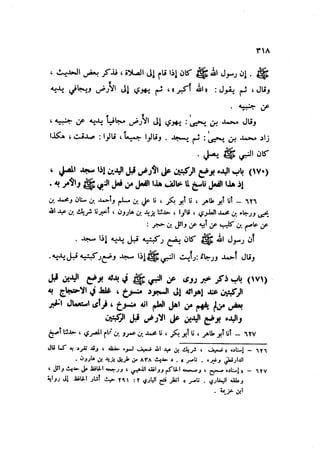 ٣١٨
ﷺ . إن رسول الله ﷺ كان إذا قام إلى الصلاة ، فذكر بعض الحديث ،
وقال : ثم يقول : « الله أكبر » ، ثم يهوي إلى الأرض ويجافي يديه
عن جنبيه .
وقال محمد بن يحيى : ثم يهوي إلى الأرض مجافيا يديه عن جنبيه ،
زاد محمد بن يحيى : ثم يسجد . وقالوا جميعا ، قالوا : صدقت ، هكذا
كان النبي ﷺ يصلي .
(١٧٠) باب البدء بوضع الركبتين على الأرض قبل اليدين إذا سجد المصلي ،
إذ هذا الفعل ناسخ لما خالف هذا الفعل من فعل النبي ﷺ والأمر به .
٦٢٦ – أنا أبو طاهر ، نا أبو بكر ، نا علي بن مسلم وأحمد بن سنان ومحمد بن
يحيى ورجاء بن محمد العذري ، قالوا ، حدثنا يزيد بن هارون ، أخبرنا شريك بن عبد الله
عن عاصم بن كليب عن أبيه عن وائل بن حجر :
أن رسول الله ﷺ كان يضع ركبتيه قبل يديه إذا سجد .
وقال أحمد ورجاء : رأيت النبي ﷺ إذا سجد وضع ركبتيه قبل يديه.
(١٧١) باب ذكر خبر روي عن النبي ﷺ في بدئه بوضع اليدين قبل
الركبتين عند إهوائه إلى السجود منسوخ ، غلط في الاحتجاج به
بعض من لم يفهم من اهل العلم انه منسوخ ، فرأى استعمال الخبر
والبدء بوضع اليدين على الأرض قبل الركبتين
٦٢٧ – أنا أبو طاهر ، نا أبو بكر ، نا محمد بن عمرو بن تمام المصري ، حدثنا أصبغ
٦٢٦ – « إسناده ضعيف ، شريك بن عبد الله ضعيف لسوء حفظه ، وقد تفرد به كما قال
الدارقطني وغيره . ناصر » . د حديث ٨٣٨ من طريق يزيد بن هارون .
٦٢٧ – « إسناده صحيح ، وصححه الحاكم ووافقه الذهبي ، ورجحه الحافظ على حديث وائل ،
وعلقه البخاري . ناصر » انظر فتح الباري ٢ : ٢٩١ حيث أشار الحافظ إلى رواية
ابن خزيمة .